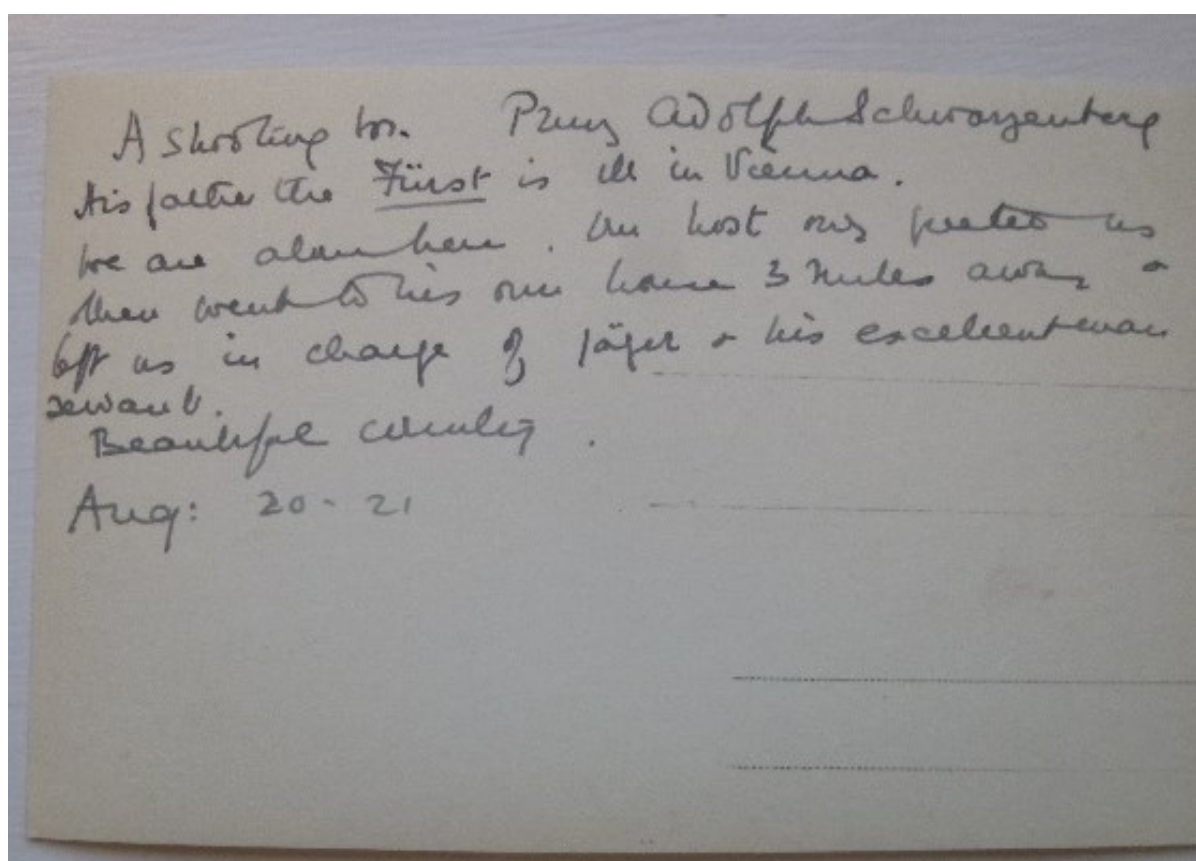 A shooting box. Prinz Adolph Schwarzenberg
His father the Fürst is ill in Vienna.
We are alone here. Our host only greeted us
then went to his own house 3 miles away &
left us in charge of Jäger & his excellent man
servant.
Beautiful country.
Aug: 20 - 21